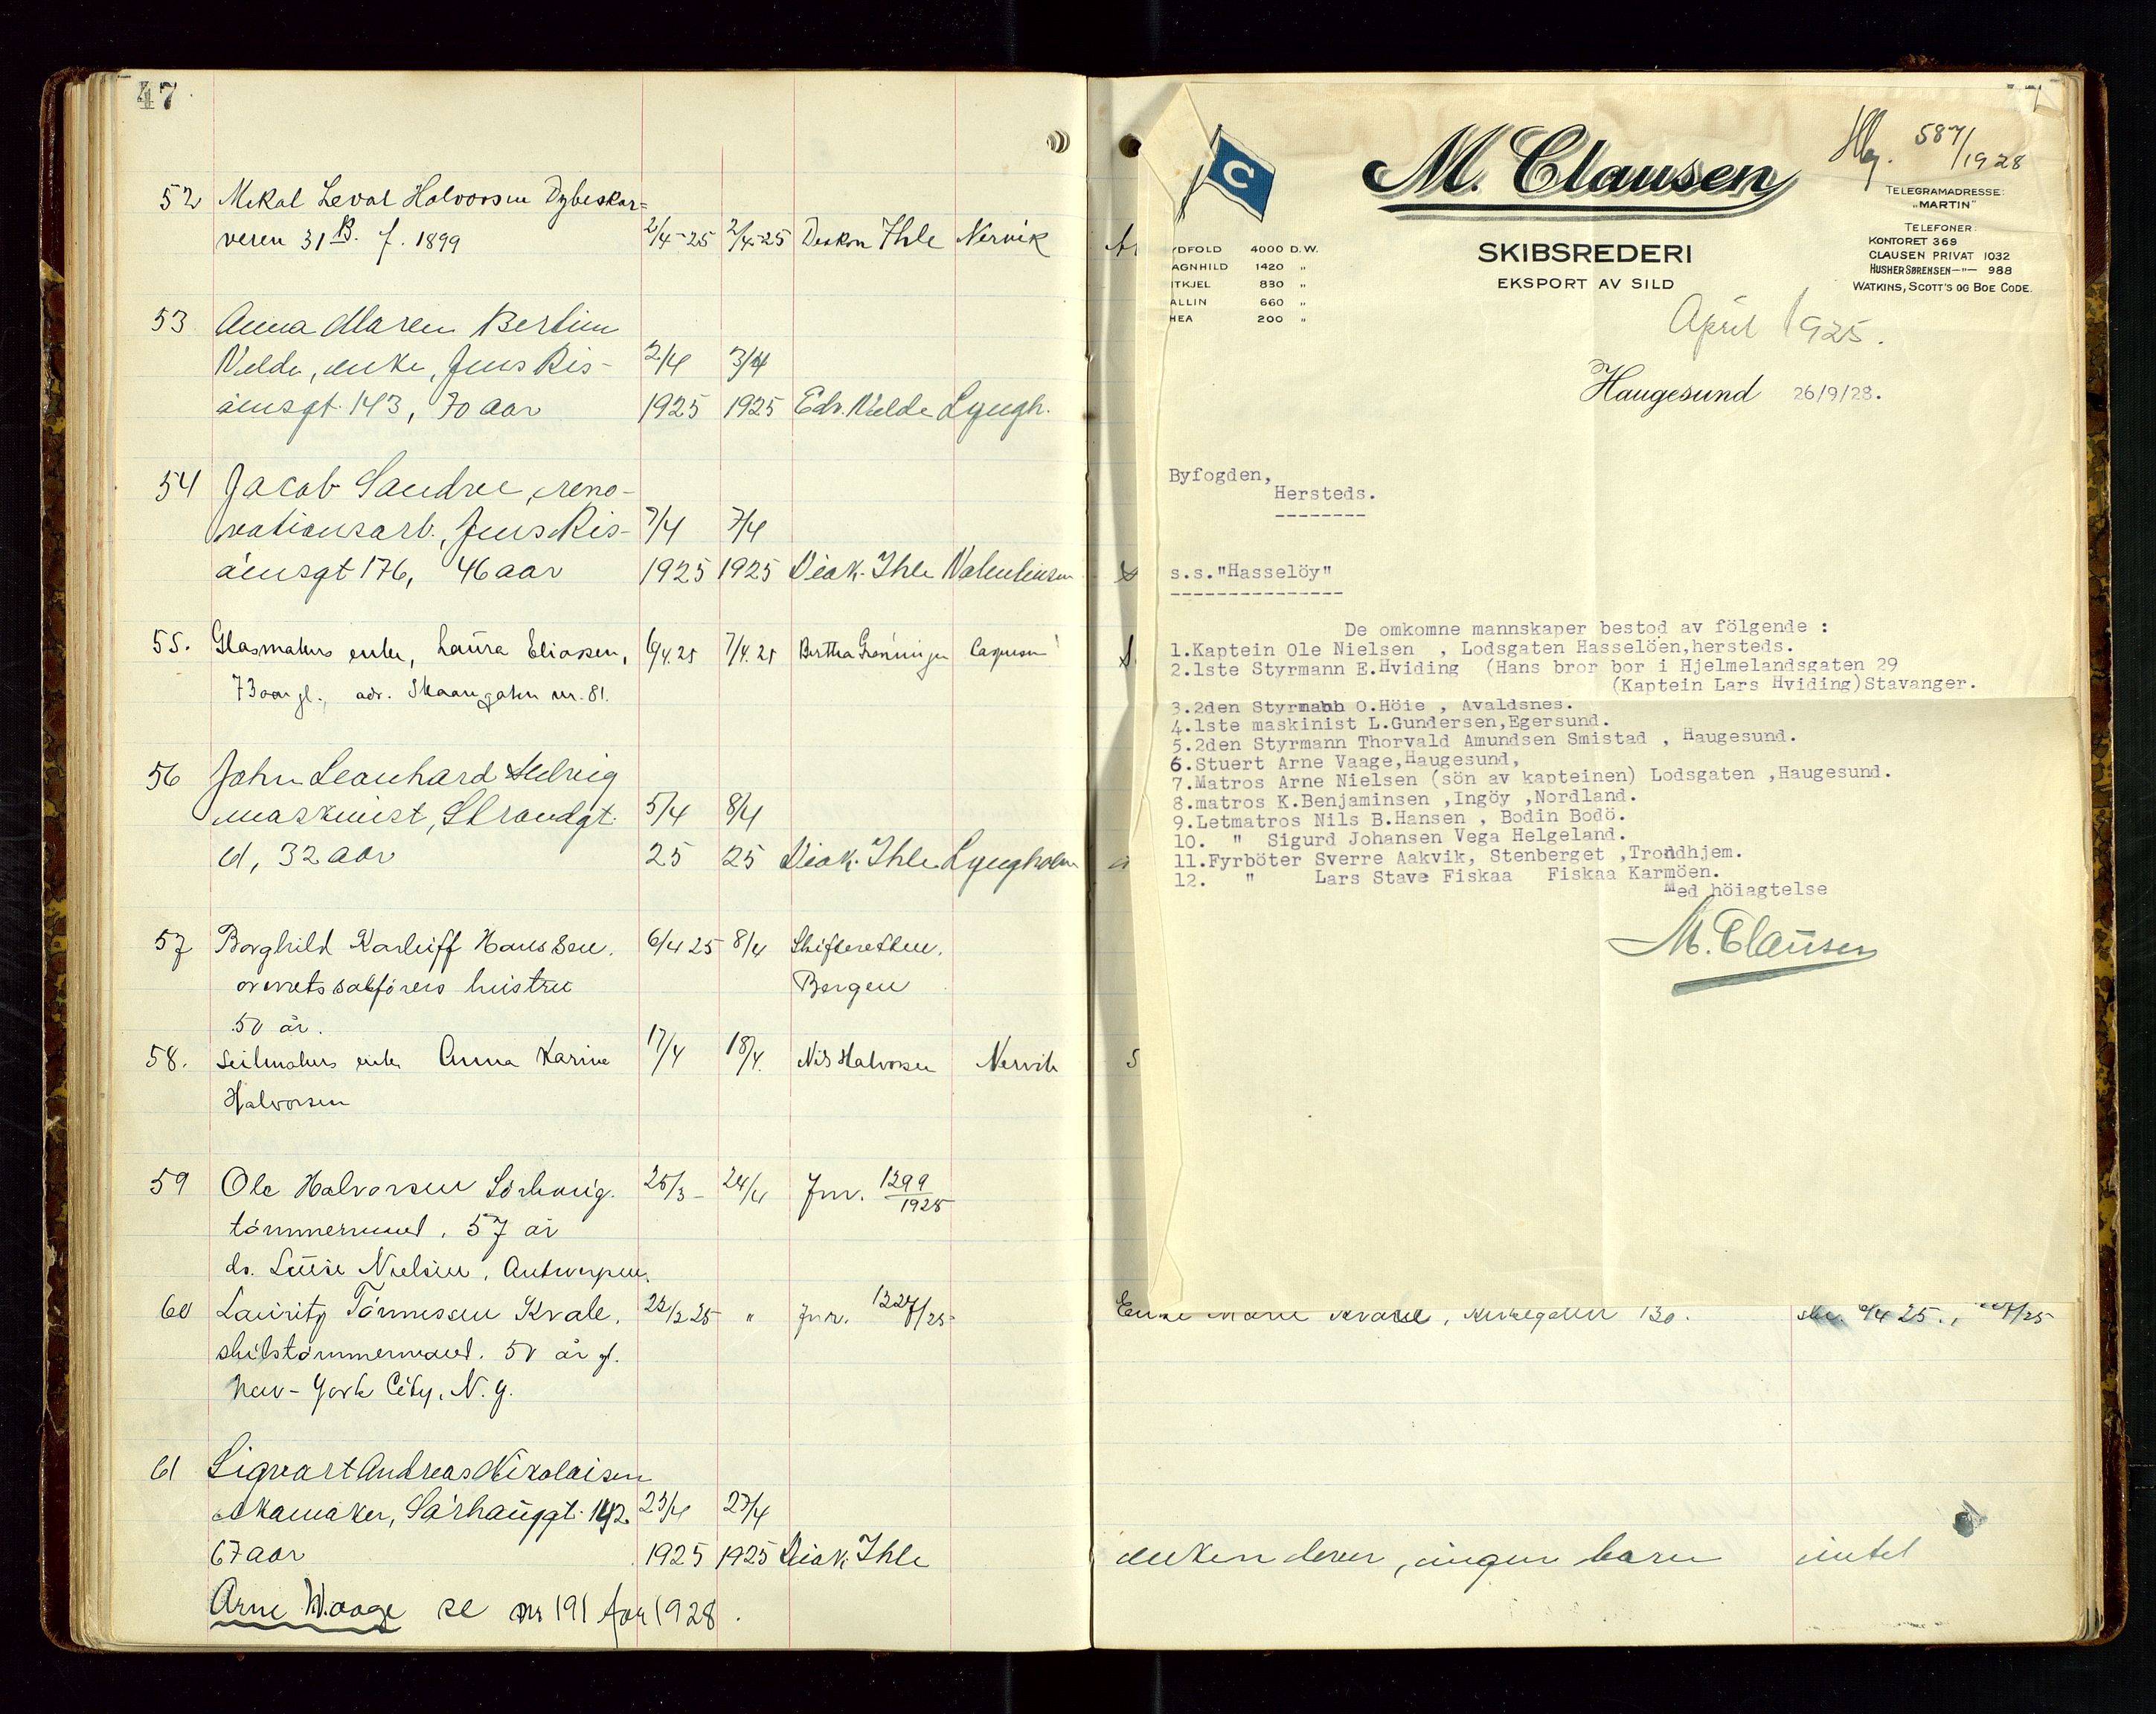 47
52 Mikal Leval Halvorsen Dybeskar=
veren 31 B. f. 1899 2/4-25 2/4-25 Deakon Ihle Nervik
53 Anna Maren Bertine
Velde, enke, Jens Ris- 2/4 3/4
öensgt. 143, 70 aar 1925 1925 Edv. Velde Lyngh.
54 Jacob Sandve, reno-
vationsarb., Jens Ris- 7/4 7/4
öensgt 176, 46 aar 1925 1925 Diak. Ihle Valentinsen
55. Glasmakers enke, Laura Eliasen, 6/4.25 7/4.25 Bertha Grønningen Caspersen
73 aar gl., adr. Skaaregaten nr. 81.
56 John Leonhard
maskinist, Strandgt. 5/4 8/4
61, 32 aar 25 25 Diak. Ihle Lyngholm
57 Borghild Hanssen. 6/4 25 8/4 Skifteretten.
overretssakförers hustru Bergen
50 år.
58. Seilmakers enke Anna Karine 17/4 18/4. Nils Halvorsen Nervik
Halvorsen
59 Ole Halvorsen Sörhaug. 25/3- 24/4 Jnr. 1299/1925
tömmermand. 57 år
ds. Luise Nielsen, Antwerpen.
60 Lauritz Tönnessen Kvale. 22/2 25 " Jnr. 1327/25
skibstömmermand. 50 år gl.
New-York City, N.Y.
61 Sigvart Andreas Nikolaisen
skomaker, Sörhauggt. 142. 23/4 27/4
67 aar 1925 1925 Diak. Ihle
Arne Waage se nr 191 for 1928.
M. Clausen
587/1928
TELEGRAMADRESSE:
„MARTIN"
TELEFONER:
KONTORET 369
CLAUSEN PRIVAT 1032
HUSHER SØRENSEN —"— 988
WATKINS, SCOTT'S OG BOE CODE.
YDFOLD 4000 D.W.
AGNHILD 1420 "
ITKJEL 830 "
ALLIN 660 "
HEA 200 "
SKIBSREDERI
EKSPORT AV SILD
April 1925.
Haugesund 26/9/28.
Byfogden,
Hersteds.
--------
s.s."Hasselöy"
---------------
De omkomne mannskaper bestod av fölgende :
1.Kaptein Ole Nielsen , Lodsgaten Hasselöen,hersteds.
2.1ste Styrmann E.Hviding (Hans bror bor i Hjelmelandsgaten 29
(Kaptein Lars Hviding)Stavanger.
3.2den Styrmann O.Höie , Avaldsnes.
4.1ste maskinist L.Gundersen,Egersund.
5.2den Styrmann Thorvald Amundsen Smistad , Haugesund.
6.Stuert Arne Vaage,Haugesund,
7.Matros Arne Nielsen (sön av kapteinen) Lodsgaten ,Haugesund.
8.matros K.Benjaminsen ,Ingöy ,Nordland.
9.Letmatros Nils B.Hansen , Bodin Bodö.
10. " Sigurd Johansen Vega Helgeland.
11.Fyrböter Sverre Aakvik, Stenberget ,Trondhjem.
12. " Lars Stave Fiskaa Fiskaa Karmöen.
Med höiagtelse
M. Clausen
Enke Marie Kvale, Kirkegaten 130.
enken lever, ingen barn intet